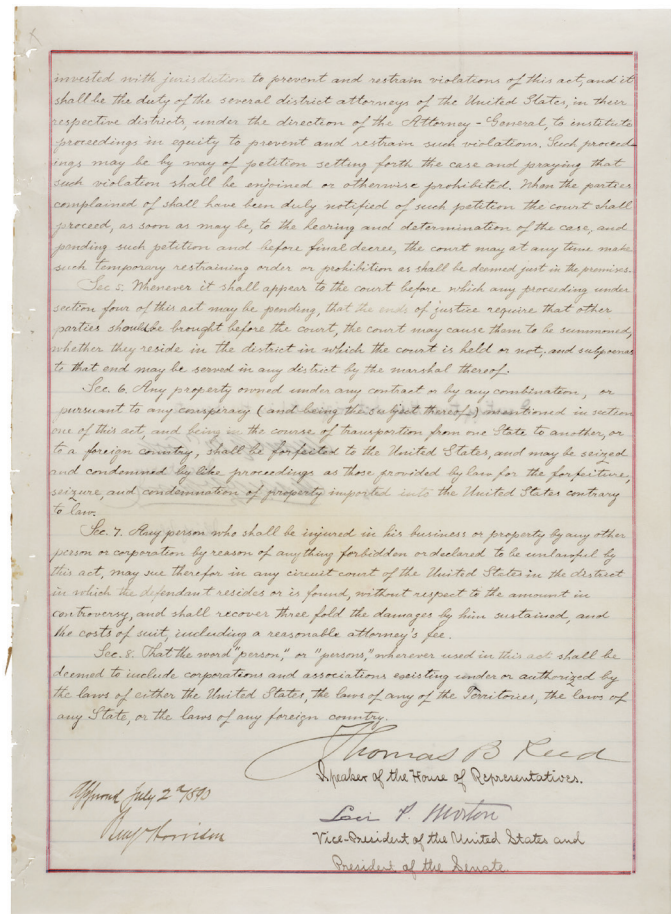 invested with jurisdiction to prevent and restrain violations of this act; and it
shall be the duty of the several district attorneys of the United States, in their
respective districts, under the direction of the Attorney-General, to institute
proceedings in equity to prevent and restrain such violations. Such proceed-
ings may be by way of petition setting forth the case and praying that
such violation shall be enjoined or otherwise prohibited. When the parties
complained of shall have been duly notified of such petition the court shall
proceed, as soon as may be, to the hearing and determination of the case; and
pending such petition and before final decree, the court may at any time make
such temporary restraining order or prohibition as shall be deemed just in the premises.
Sec. 5. Whenever it shall appear to the court before which any proceeding under
section four of this act may be pending, that the ends of justice require that other
parties should be brought before the court, the court may cause them to be summoned,
whether they reside in the district in which the court is held or not; and subpoenas
to that end may be served in any district by the marshal thereof.
Sec. 6. Any property owned under any contract or by any combination, or
pursuant to any conspiracy (and being the subject thereof) mentioned in section
one of this act, and being in the course of transportion from one State to another, or
to a foreign country, shall be forfeited to the United States, and may be seized
and condemned by like proceedings as those provided by law for the forfeiture,
seizure, and condemnation of property imported into the United States contrary
to law.
Sec. 7. Any person who shall be injured in his business or property by any other
person or corporation by reason of anything forbidden or declared to be unlawful by
this act, may sue therefor in any circuit court of the United States in the district
in which the defendant resides or is found, without respect to the amount in
controversy, and shall recover three fold the damages by him sustained, and
the costs of suit, including a reasonable attorney's fee.
Sec. 8. That the word "person," or "persons," wherever used in this act shall be
deemed to include corporations and associations existing under or authorized by
the laws of either the United States, the laws of any of the Territories, the laws of
any State, or the laws of any foreign country.
Thomas B Reed
Speaker of the House of Representatives.
Approved July 2d 1890
Levi P. Morton
Benj Harrison
Vice-President of the United States and
President of the Senate.